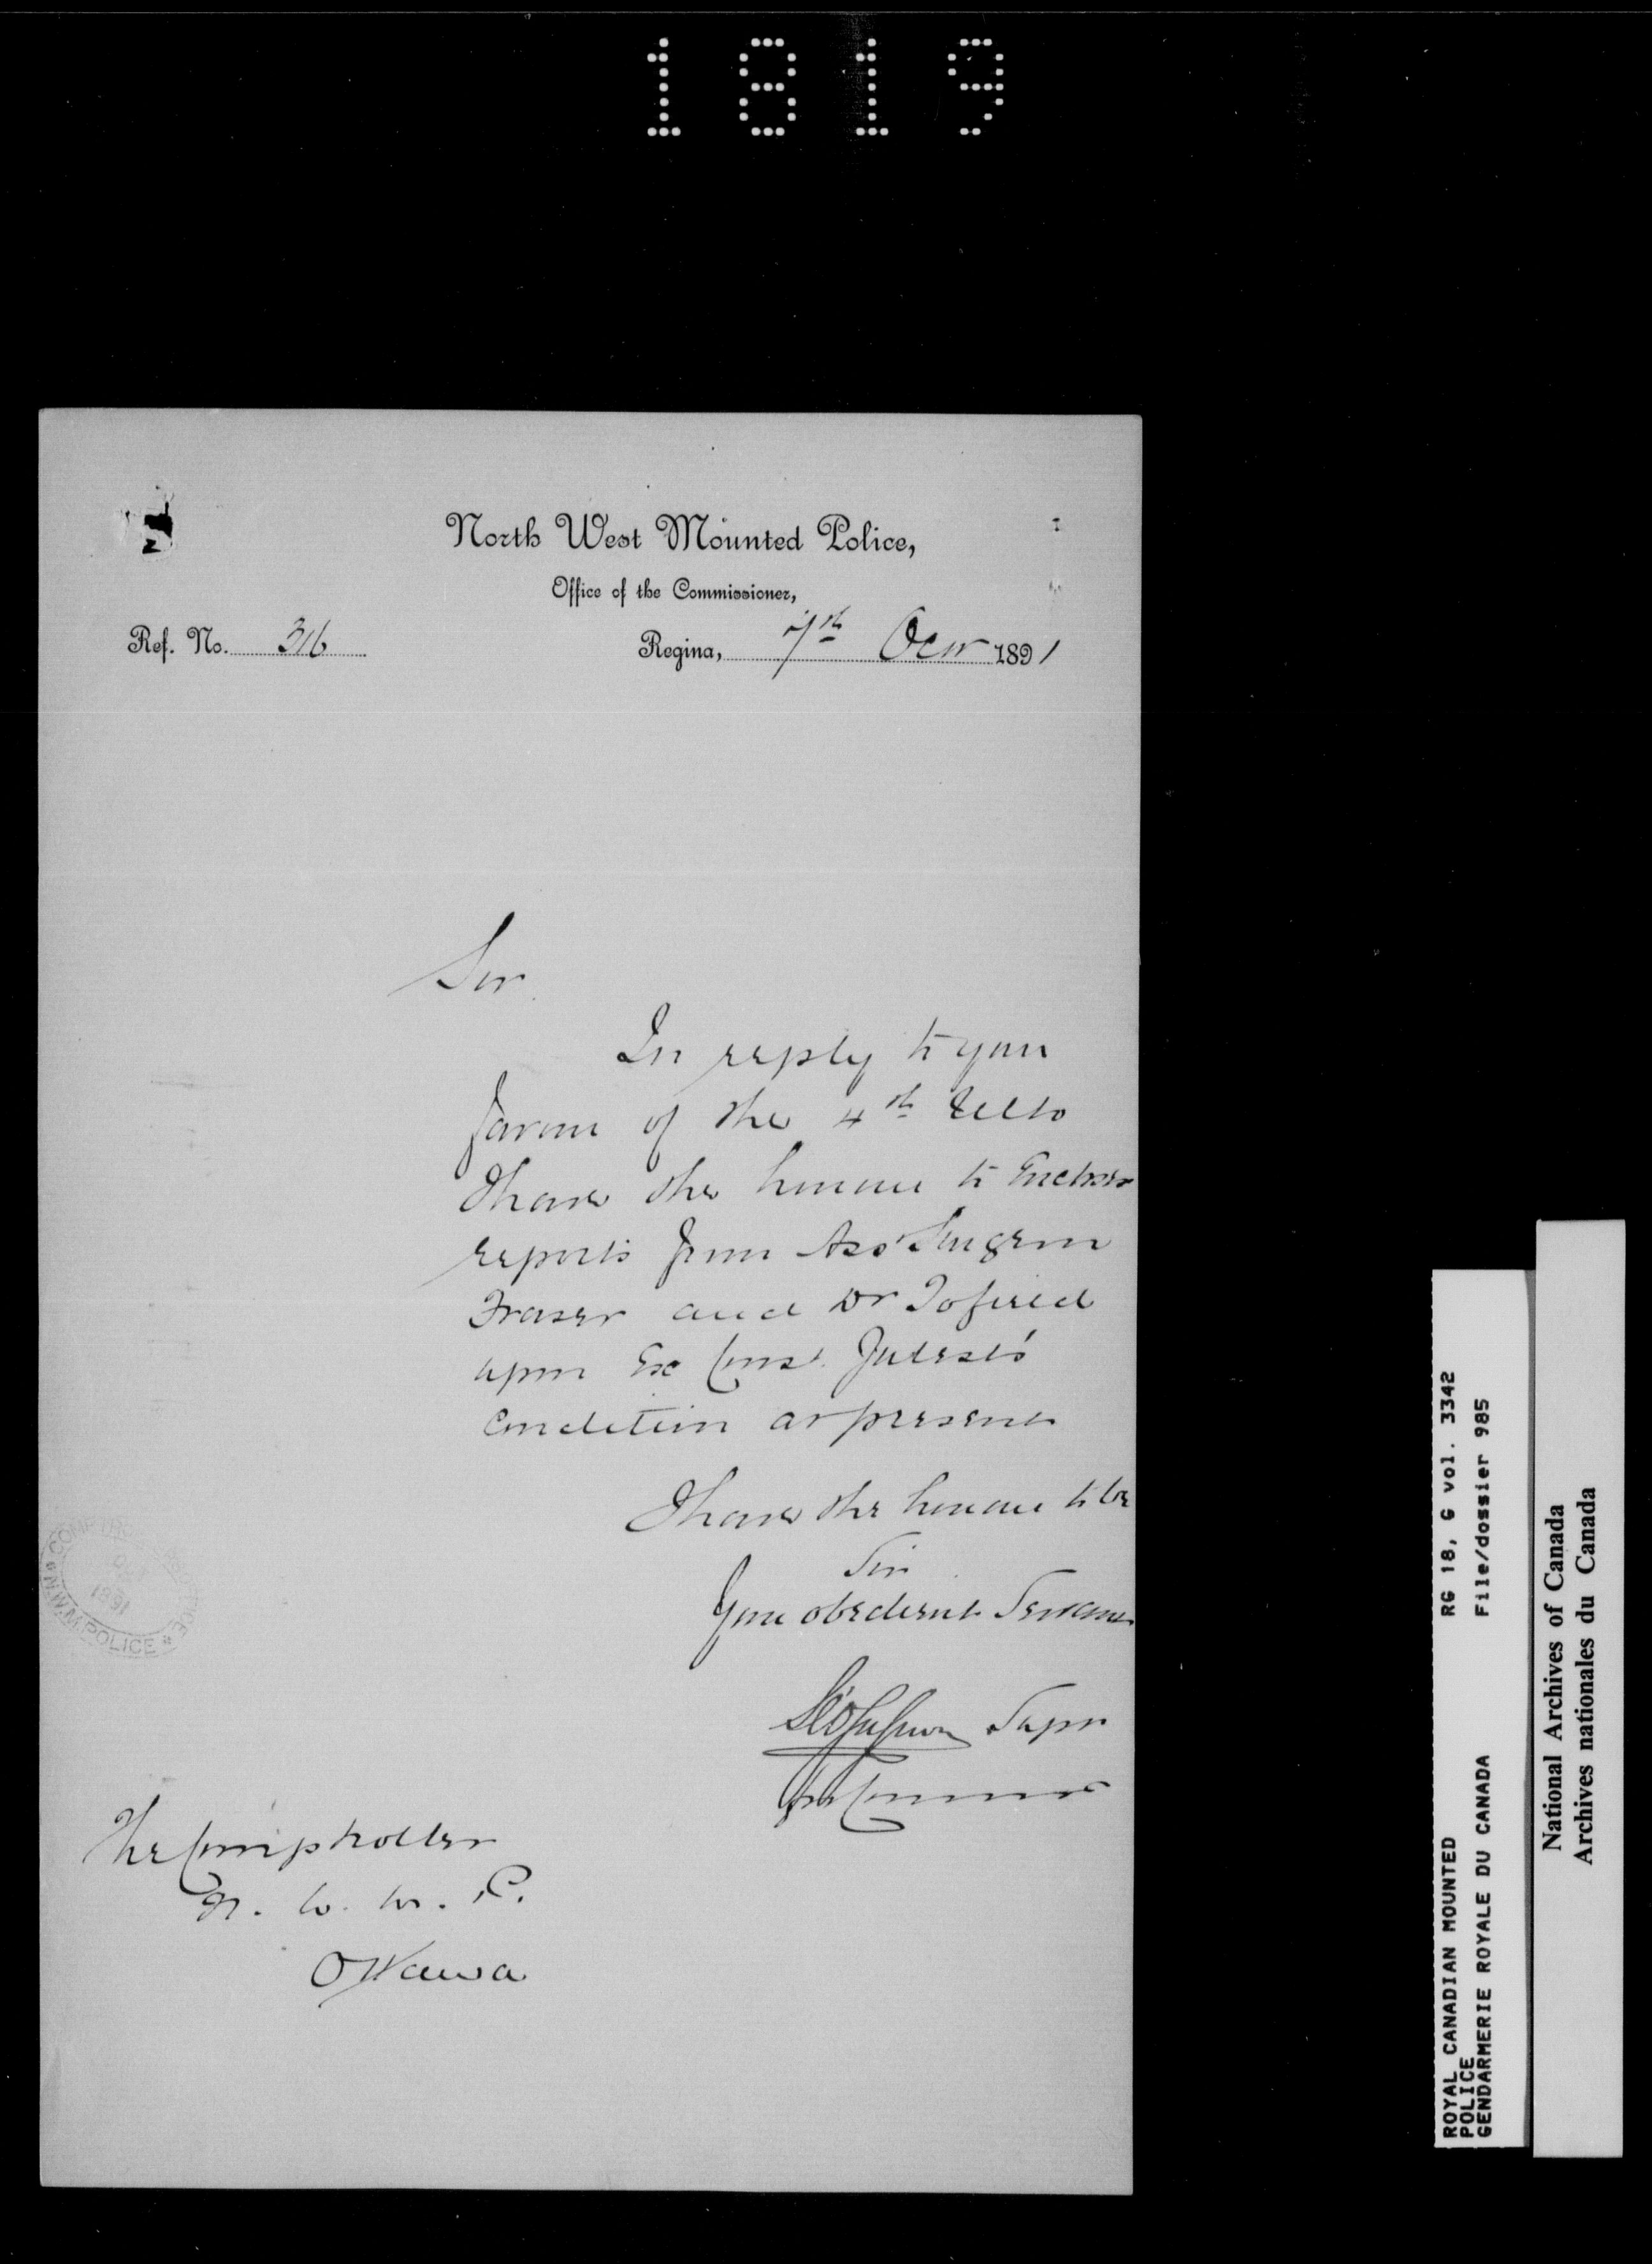 1819
North West Mounted Police,
Office of the Commissioner,
Ref. No. 316
Regina, 7th Octr 1891
Sir
In reply to your
favour of the 4th Ulto
I have the honour to Enclose
reports from Asst Surgeon
Fraser and Dr Tofield
upon Ex Const.
Condition at present
I have the honour to be
Sir
Your obedient Servant
Supt
for Commr
The Comptroller
N. W. M. P.
Ottawa
COMPTROLLER
OCT
1891
N.W.M. POLICE
ROYAL CANADIAN MOUNTED
POLICE
GENDARMERIE ROYALE DU CANADA
RG 18, G vol. 3342
File/dossier 985
National Archives of Canada
Archives nationales du Canada